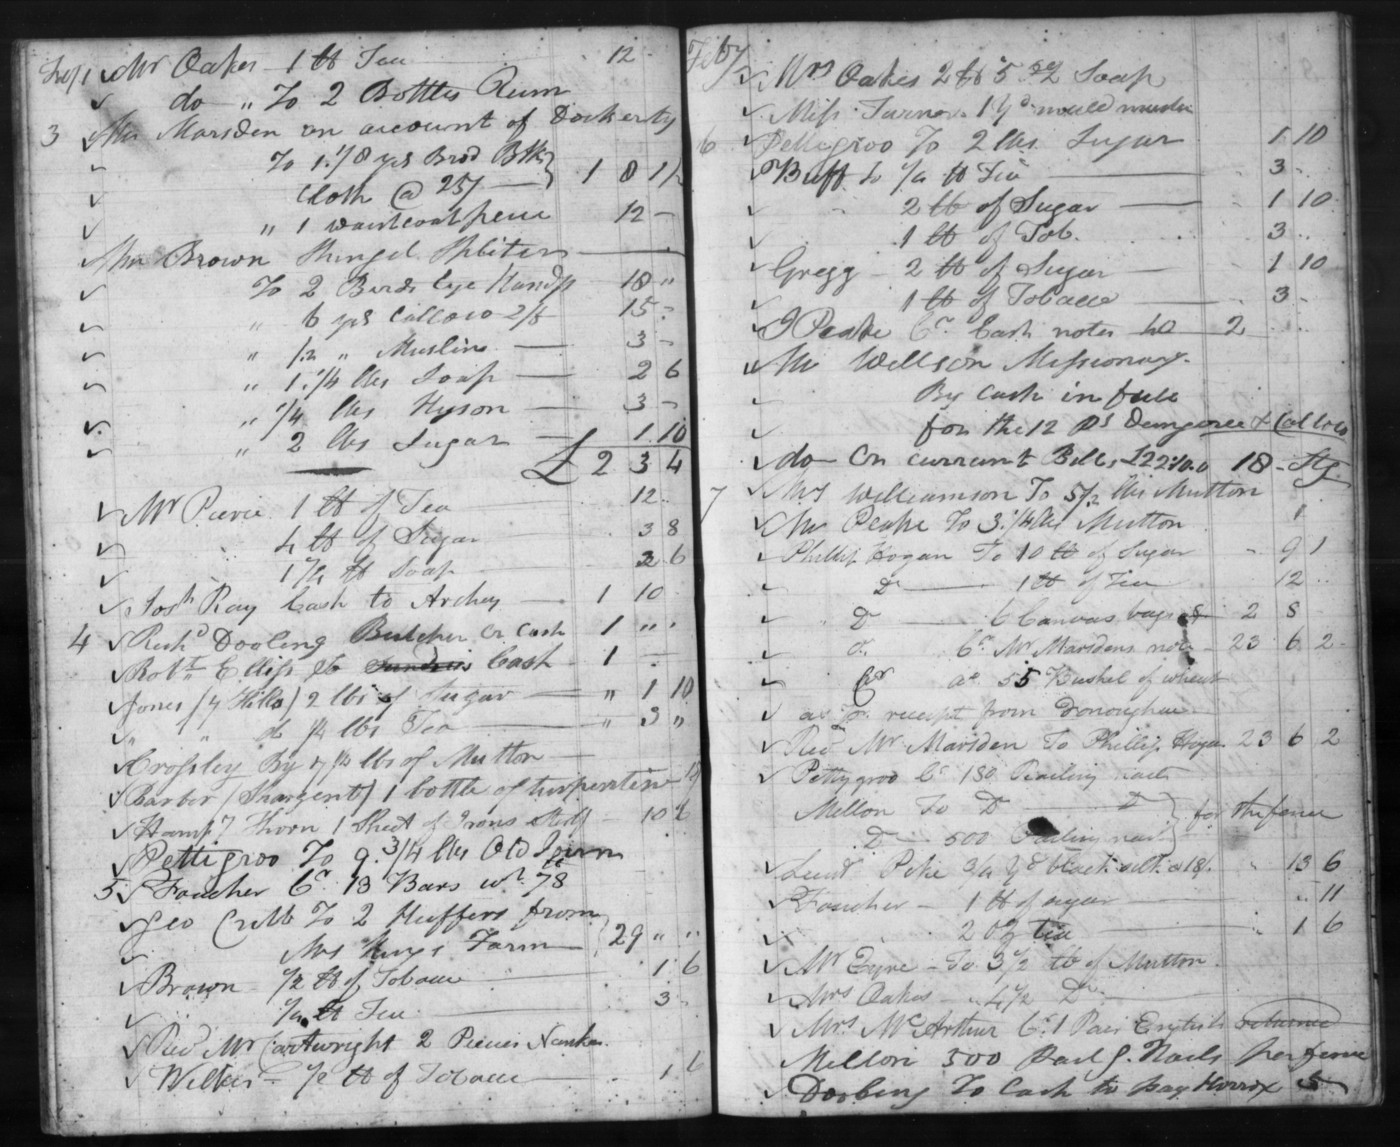 Mr Oakes 1 lb Tea 12
do " To 2 Bottles Rum
3 Mr Marsden on account of Dockerty
To 1 1/8 yds Brod Blk
Cloth @ 25/ 1 8 1 1/2
" 1 waistcoat piece 12 -
Mr Brown Shingel Spliter
To 2 Birds Eye Handfs 18 "
" 6 yds Callico 2/6 15 -
" 1/2 " Muslin 3 -
" 1 1/4 lbs Soap 2 6
" 1/4 lbs Hyson 3 -
" 2 lbs Sugar 1 10
£ 2 3 4
Mr Pierie 1 lb of Tea 12
4 lb of Sugar 3 8
lb Soap 2 6
Josh Ray Cash to Archey 1 10
4 Richd Dooling Butcher Cr Cash 1 " "
Robt Elliss Cash 1
Jones (7 Hills) 2 lbs of Sugar " 1 10
" " do 1/4 lbs Tea " 3 "
Crossley By 7 1/2 lbs of Mutton
Barber (Thargents) 1 bottle of turpentine
Thorn 1 Sheet of Irons 10 6
Pettigroo To 9 3/4 lbs Old Iourn
5 Faucher Cr 13 Bars wt 78
Geo Cribb To 2 Heffers from
Mrs Kings Farm 29 " "
Brown 1/2 lb of Tobacco 1 6
1/4 lb Tea 3 -
Revd Mr Cartwright 2 Pieces Nankn
Wilkes 1/2 lb of Tobacco 1 6
Feby
Mrs Oakes 2 lb 5 oz Soap
Miss Turner 1 yd mould muslin
6 Pettigroo To 2 lbs Sugar 1 10
Buff to 1/4 lb Tea 3 -
2 lb of Sugar 1 10
1 lb of Tob. 3
Gregg - 2 lb of Sugar 1 10
1 lb of Tobacco 3 -
J Peake Cr Cash notes 40 2
Mr Wellson Missionary
By Cash in full
for the 12 Ps Dungeree & Callico
do on currant Bills £22:10.0 18 - Stg
7 Mrs Williamson To 5 1/2 lbs Mutton
Mr Peake To 3 1/4 lbs Mutton
Phillip Hogan To 10 lb of Sugar 9 1
Do 1 lb of Tea 12
Do 6 Canvas bags 2 8
Cr Mr Marsdens note 23 6 2
Cr 55 Bushel of wheat
as pr receipt from Donoughue
Revd Mr Marsden To Phillip Hogan 23 6 2
Pettygroo Cr 130 Pealing nails
Mellon To Do Do
Do 500 Pailing nails for the fence
Lieut Pike 3/4 yd black silk @ 18/. 13 6
Faucher 1 lb of sugar 11
2 oz tea 1 6
Mr Eyre - To 3 1/2 lb of Mutton
Mrs Oakes 4 1/2 Do
Mrs McArthur Cr 1 Pair English returned
Mellon 500 Pailg. Nails for fence
Dooling To Cash to pay Horrox 5